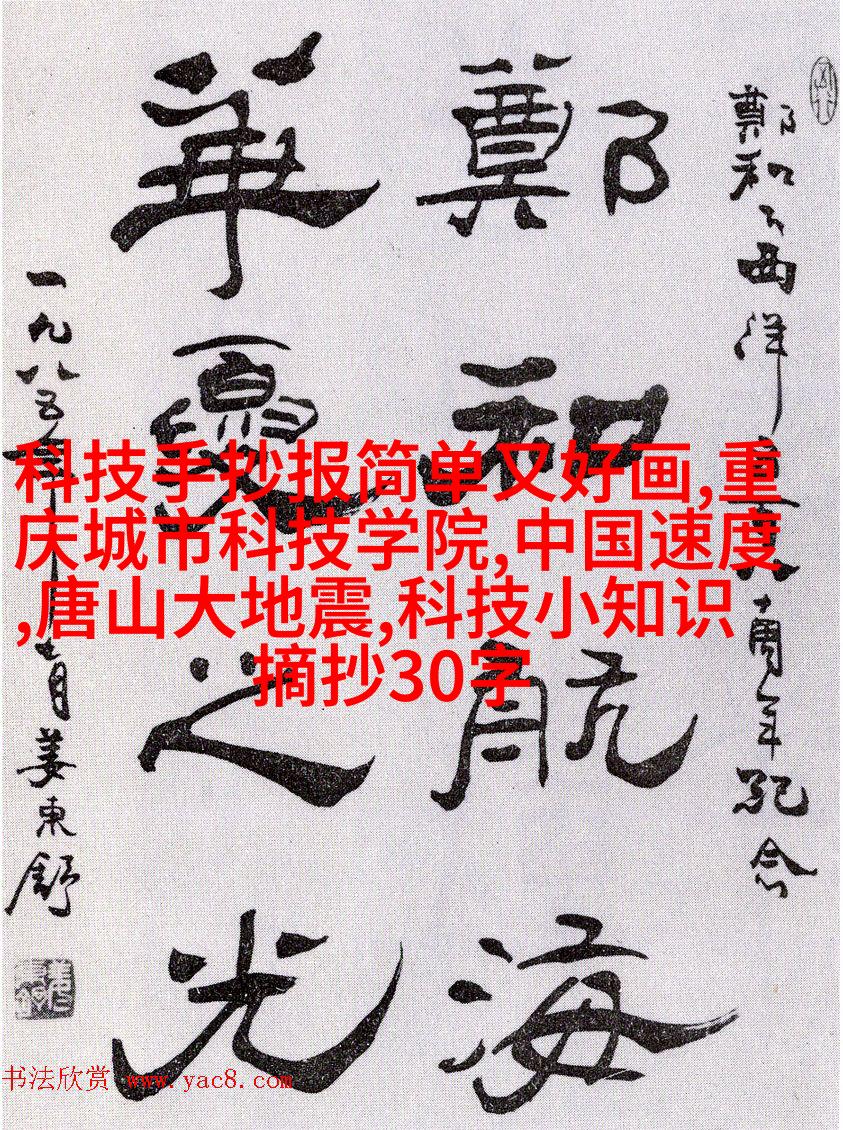 鄭和下西洋五八十周年纪念
鄭和航海
華夏之光
一九八五年
月姜東舒
科技手抄报简单又好画,重
庆城市科技学院,中国速度
,唐山大地震,科技小知识
摘抄30字
书法欣赏 www.yac8.com